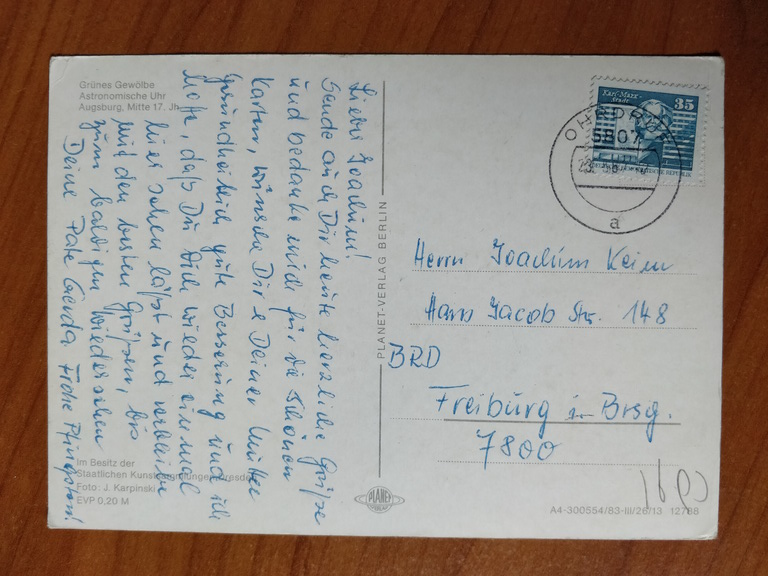 Grünes Gewölbe
Astronomische Uhr
Augsburg, Mitte 17. Jh.
Lieber Joachim!
Sende auch Dir heute herzliche Grüße
und bedanke mich für die schönen
Karten, wünsche Dir e Deiner Mutter
gesundheitlich gute Besserung und ich
hoffe, daß Du Dich wieder einmal
hier sehen läßt und verbleibe
mit den besten Grüßen, bis
zum baldigen Wiedersehen
Deine Pate Gerda. Frohe Pfingsten!
Im Besitz der
Staatlichen Kunstsammlungen Dresden
Foto: J. Karpinski
EVP 0,20 M
PLANET-VERLAG BERLIN
PLANET
VERLAG
Karl-Marx-
Stadt
35
OHRDRUF
5807
a
Herrn Joachim Keim
Hans Jacob Str. 148
BRD
Freiburg i. Brsg.
7800
A4-300554/83-III/26/13 12788